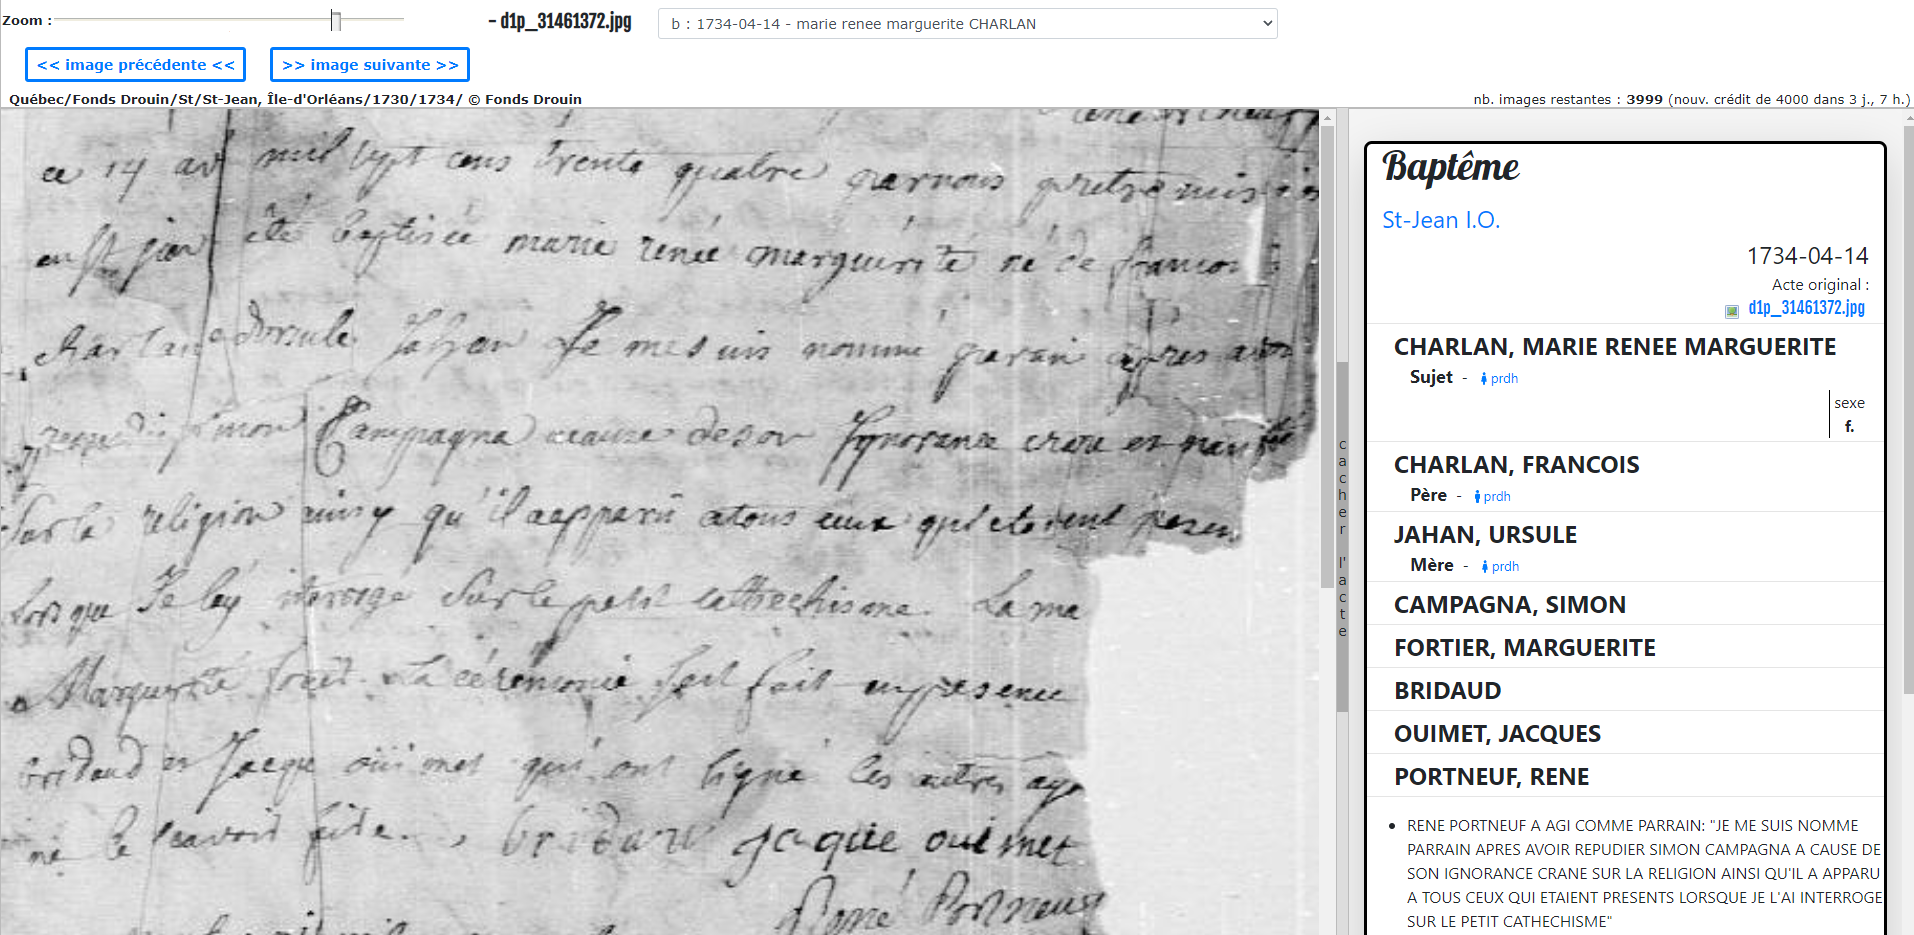 Zoom :
- d1p_31461372.jpg
b : 1734-04-14 - marie renee marguerite CHARLAN
<< image précédente <<
>> image suivante >>
Québec/Fonds Drouin/St/St-Jean, Île-d'Orléans/1730/1734/ © Fonds Drouin
nb. images restantes : 3999 (nouv. crédit de 4000 dans 3 j., 7 h.)
ce 14 av mil sept cens trente quatre par nous pretre miss
en st jean eté baptisée marie renée marguerite né de francois
charlan dorsule Jahan Je me suis nommé parain apres avoir
simon Campagna acause de son Ignorance crane et
Sur la religion ainsy qu'il a apparu a tous ceux qui etoient presen
Lors que Je lay interogé Sur le petit cathechisme. La ma
Marguerite La cérémonie fait en presence
bridaud et Jacque ouimet qui ont signé les autres aya
ne le scavoir , bridaud jacque ouimet
René Portneuf
cacher l'acte
Baptême
St-Jean I.O.
1734-04-14
Acte original :
d1p_31461372.jpg
CHARLAN, MARIE RENEE MARGUERITE
Sujet - prdh
sexe
f.
CHARLAN, FRANCOIS
Père - prdh
JAHAN, URSULE
Mère - prdh
CAMPAGNA, SIMON
FORTIER, MARGUERITE
BRIDAUD
OUIMET, JACQUES
PORTNEUF, RENE
• RENE PORTNEUF A AGI COMME PARRAIN: "JE ME SUIS NOMME
PARRAIN APRES AVOIR REPUDIER SIMON CAMPAGNA A CAUSE DE
SON IGNORANCE CRANE SUR LA RELIGION AINSI QU'IL A APPARU
A TOUS CEUX QUI ETAIENT PRESENTS LORSQUE JE L'AI INTERROGE
SUR LE PETIT CATHECHISME"